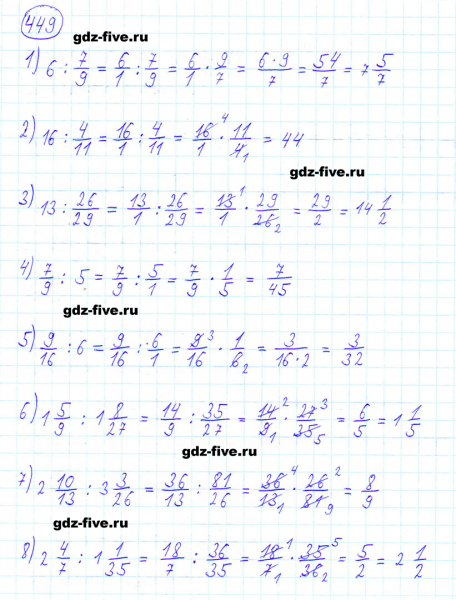 449
gdz-five.ru
1) 6 : 7/9 = 6/1 : 7/9 = 6/1 · 9/7 = 6·9/7 = 54/7 = 7 5/7
2) 16 : 4/11 = 16/1 : 4/11 = 16⁴/1 · 11/4₁ = 44
gdz-five.ru
3) 13 : 26/29 = 13/1 : 26/29 = 13¹/1 · 29/26₂ = 29/2 = 14 1/2
4) 7/9 : 5 = 7/9 : 5/1 = 7/9 · 1/5 = 7/45
gdz-five.ru
5) 9/16 : 6 = 9/16 : 6/1 = 9³/16 · 1/6₂ = 3/16·2 = 3/32
6) 1 5/9 : 1 8/27 = 14/9 : 35/27 = 14²/9₁ · 27³/35₅ = 6/5 = 1 1/5
gdz-five.ru
7) 2 10/13 : 3 3/26 = 36/13 : 81/26 = 36⁴/13₁ · 26²/81₉ = 8/9
gdz-five.ru
8) 2 4/7 : 1 1/35 = 18/7 : 36/35 = 18¹/7₁ · 35⁵/36₂ = 5/2 = 2 1/2